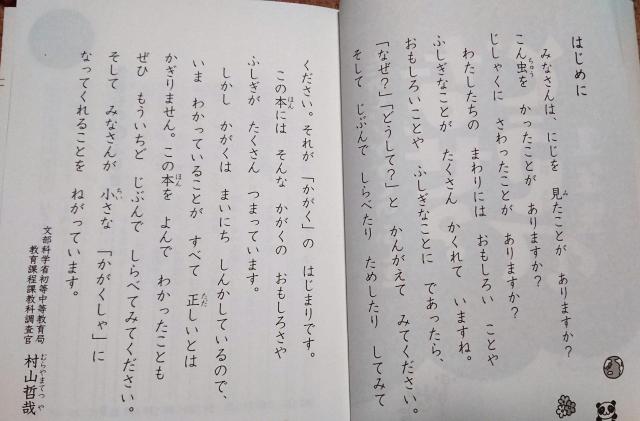 はじめに
みなさんは、にじを 見たことが ありますか？
こん虫を かったことが ありますか？
じしゃくに さわったことが ありますか？
わたしたちの まわりには おもしろい ことや
ふしぎなことが たくさん かくれて いますね。
おもしろいことや ふしぎなことに であったら、
「なぜ？」「どうして？」と かんがえて みてください。
そして じぶんで しらべたり ためしたり してみて
ください。それが 「かがく」の はじまりです。
この本には そんな かがくの おもしろさや
ふしぎが たくさん つまっています。
しかし かがくは まいにち しんかしているので、
いま わかっていることが すべて 正しいとは
かぎりません。この本を よんで わかったことも
ぜひ もういちど じぶんで しらべてみてください。
そして みなさんが 小さな 「かがくしゃ」に
なってくれることを ねがっています。
文部科学省初等中等教育局
教育課程課教科調査官 村山哲哉